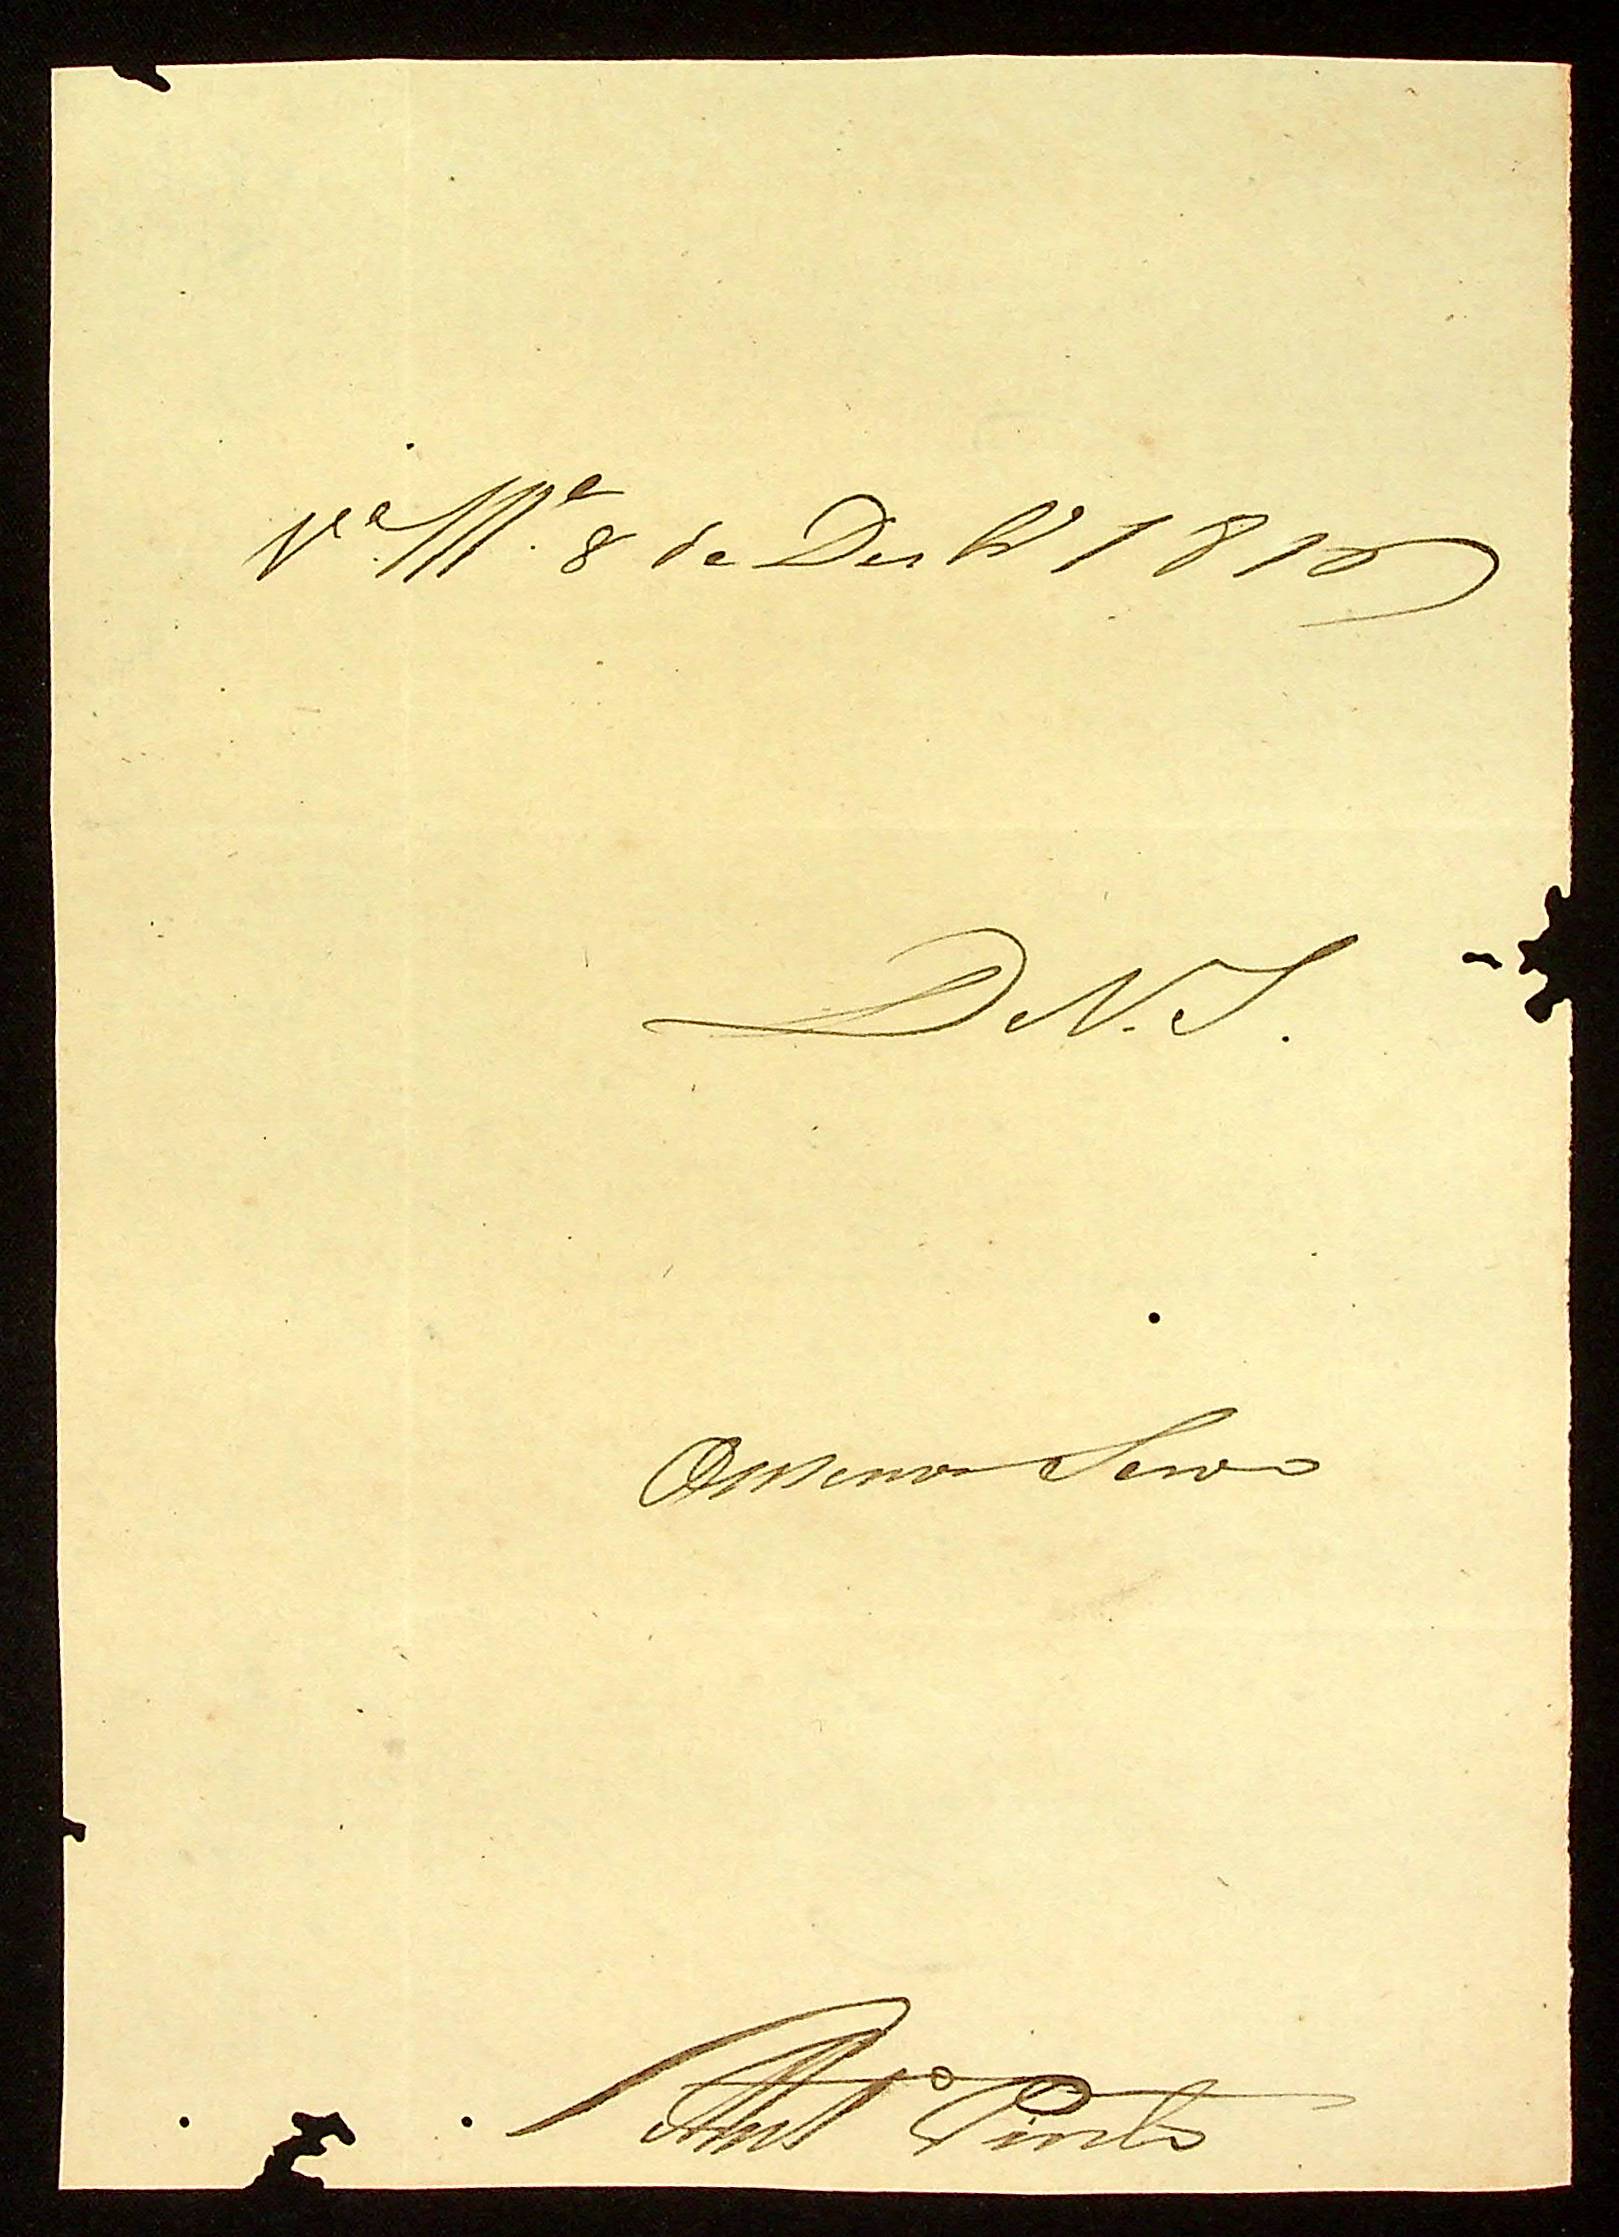 Va. Ma. 8 de Desbro 1810
De V. S.
O menor Servo
Anto Pinto